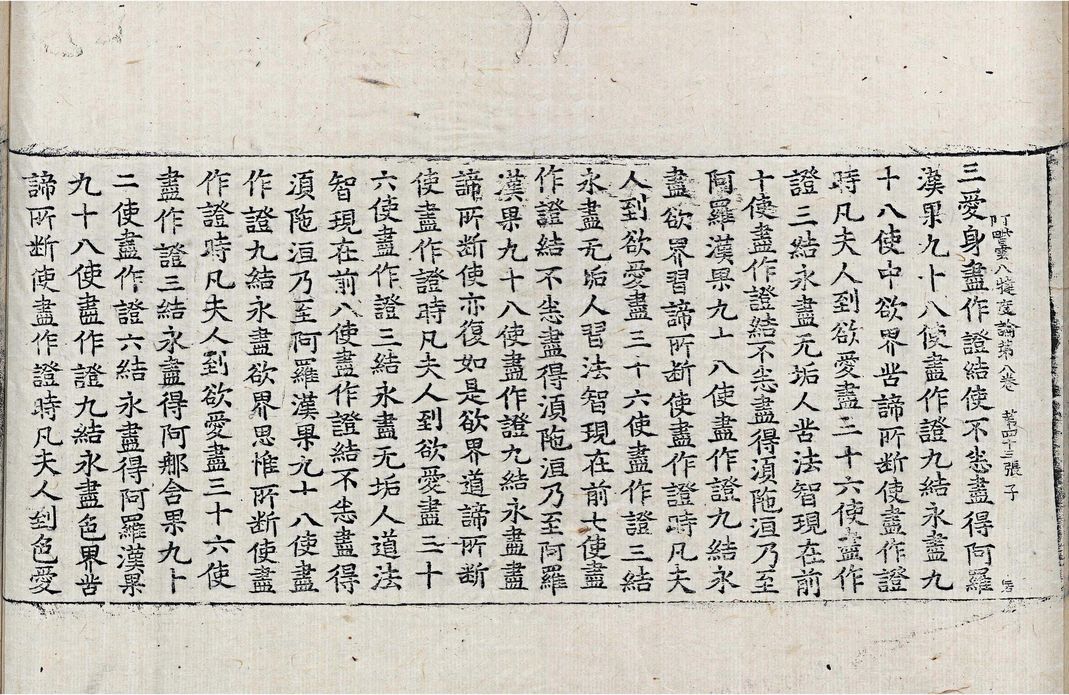 阿毗曇八犍度論第八卷 第四十三張 子
三愛身盡作證結使不恙盡得阿羅
漢果九十八使盡作證九結永盡九
十八使中欲界苦諦所断使盡作證
時凡夫人到欲愛盡三十六使盡作
證三結永盡无垢人苦法智現在前
十使盡作證結不恙盡得湏陁洹乃至
阿羅漢果九十八使盡作證九結永
盡欲界習諦所断使盡作證時凡夫
人到欲愛盡三十六使盡作證三結
永盡无垢人習法智現在前七使盡
作證結不恙盡得湏陁洹乃至阿羅
漢果九十八使盡作證九結永盡盡
諦所断使亦復如是欲界道諦所断
使盡作證時凡夫人到欲愛盡三十
六使盡作證三結永盡无垢人道法
智現在前八使盡作證結不恙盡得
湏陁洹乃至阿羅漢果九十八使盡
作證九結永盡欲界思惟所断使盡
作證時凡夫人到欲愛盡三十六使
盡作證三結永盡得阿那含果九十
二使盡作證六結永盡得阿羅漢果
九十八使盡作證九結永盡色界苦
諦所断使盡作證時凡夫人到色愛